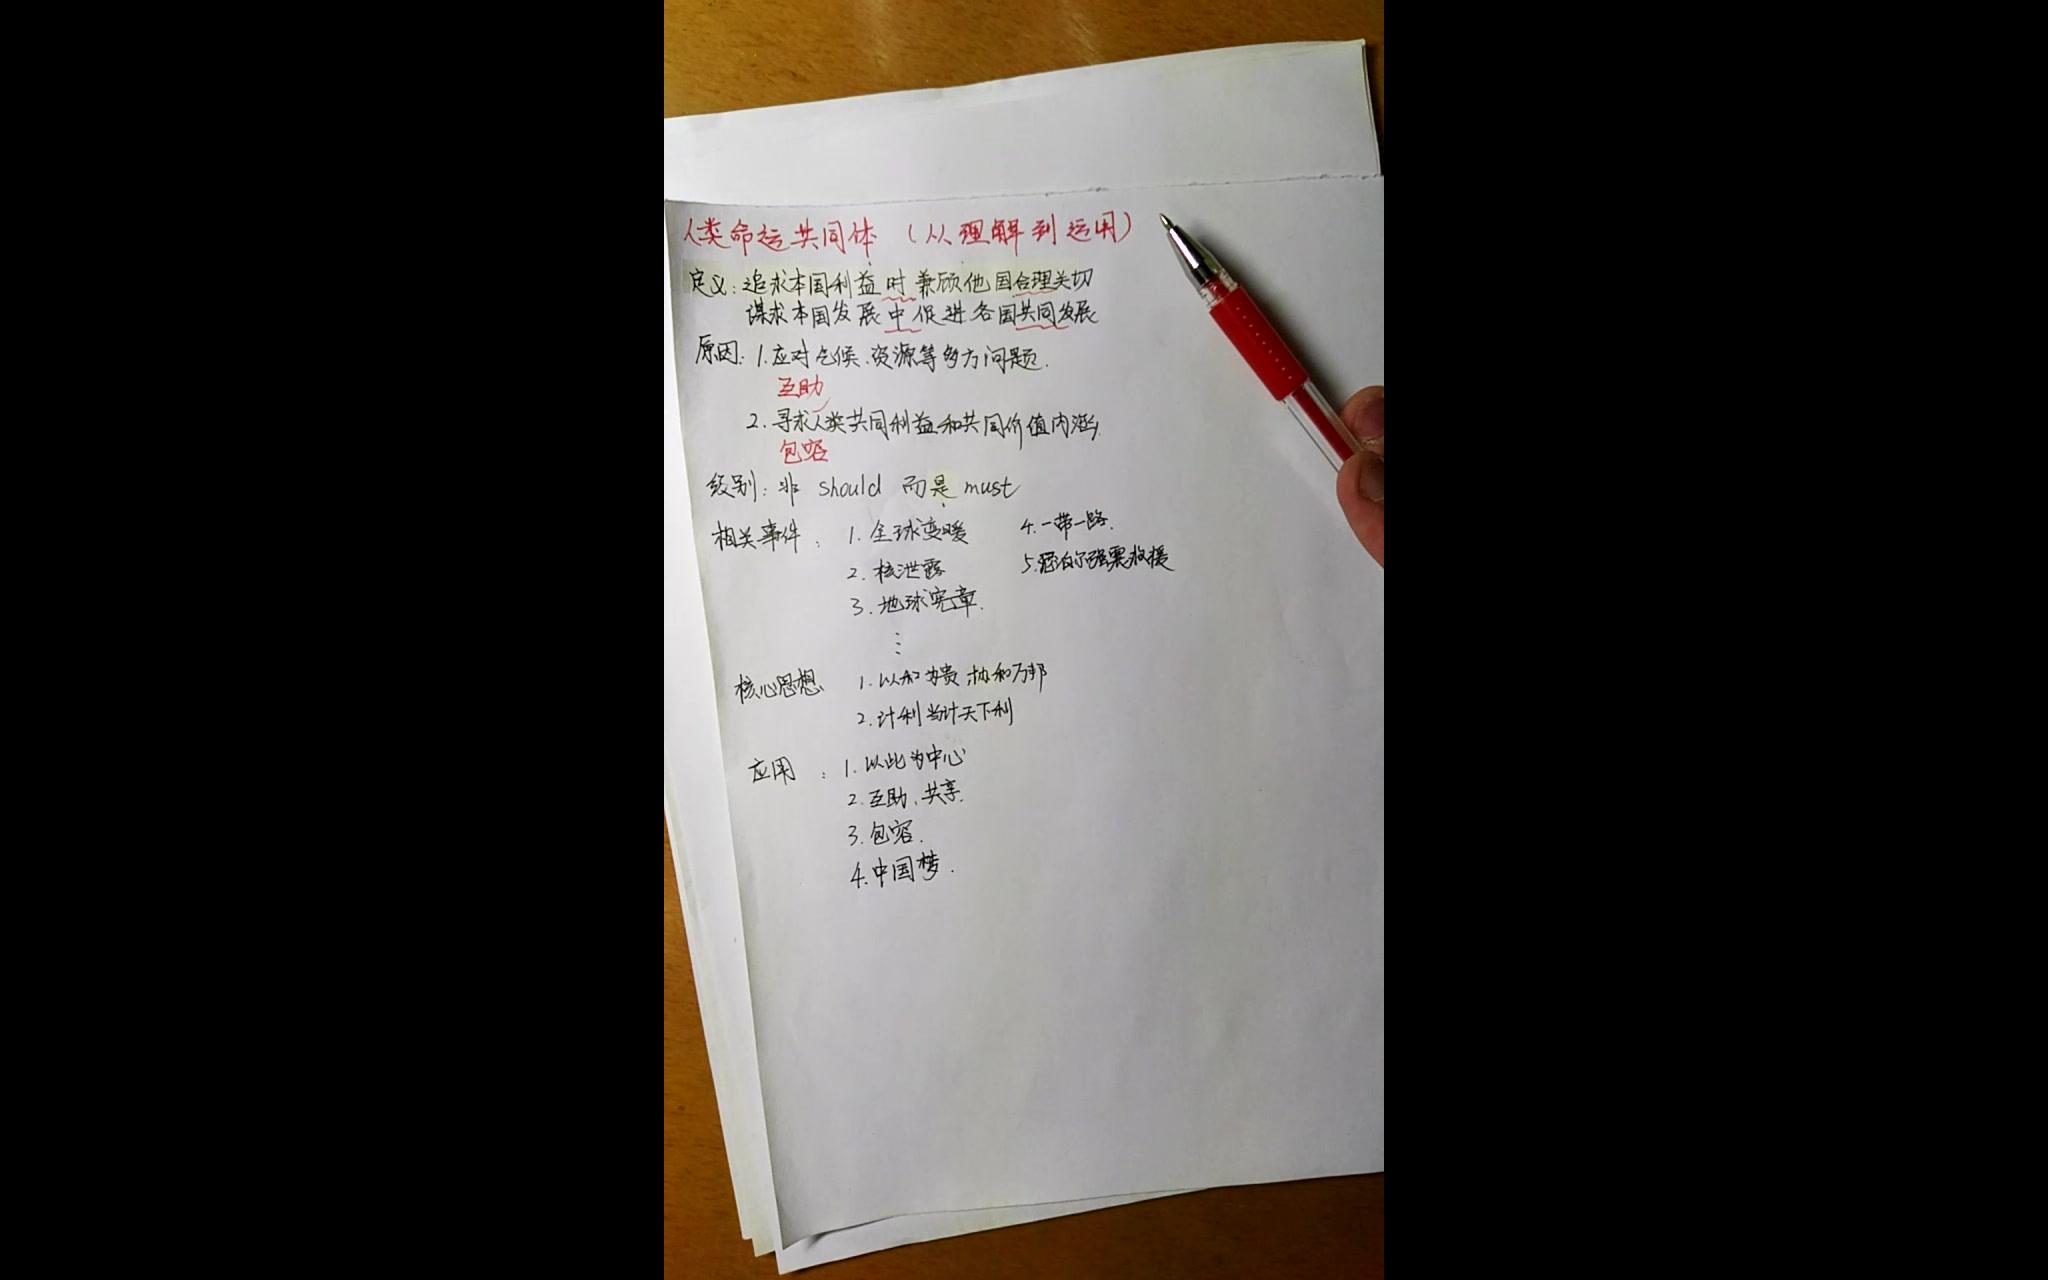 人类命运共同体（从理解到运用）
定义：追求本国利益时兼顾他国合理关切
谋求本国发展中促进各国共同发展
原因：1.应对气候、资源等多方问题.
互助
2.寻求人类共同利益和共同价值内涵.
包容
级别：非 should 而是 must
相关事件：1.全球变暖
2.核泄露
3.地球宪章.
⋮
4.一带一路.
5.尼泊尔强震救援
核心思想 1.以和为贵,协和万邦
2.计利当计天下利
应用：1.以此为中心
2.互助、共享.
3.包容.
4.中国梦.